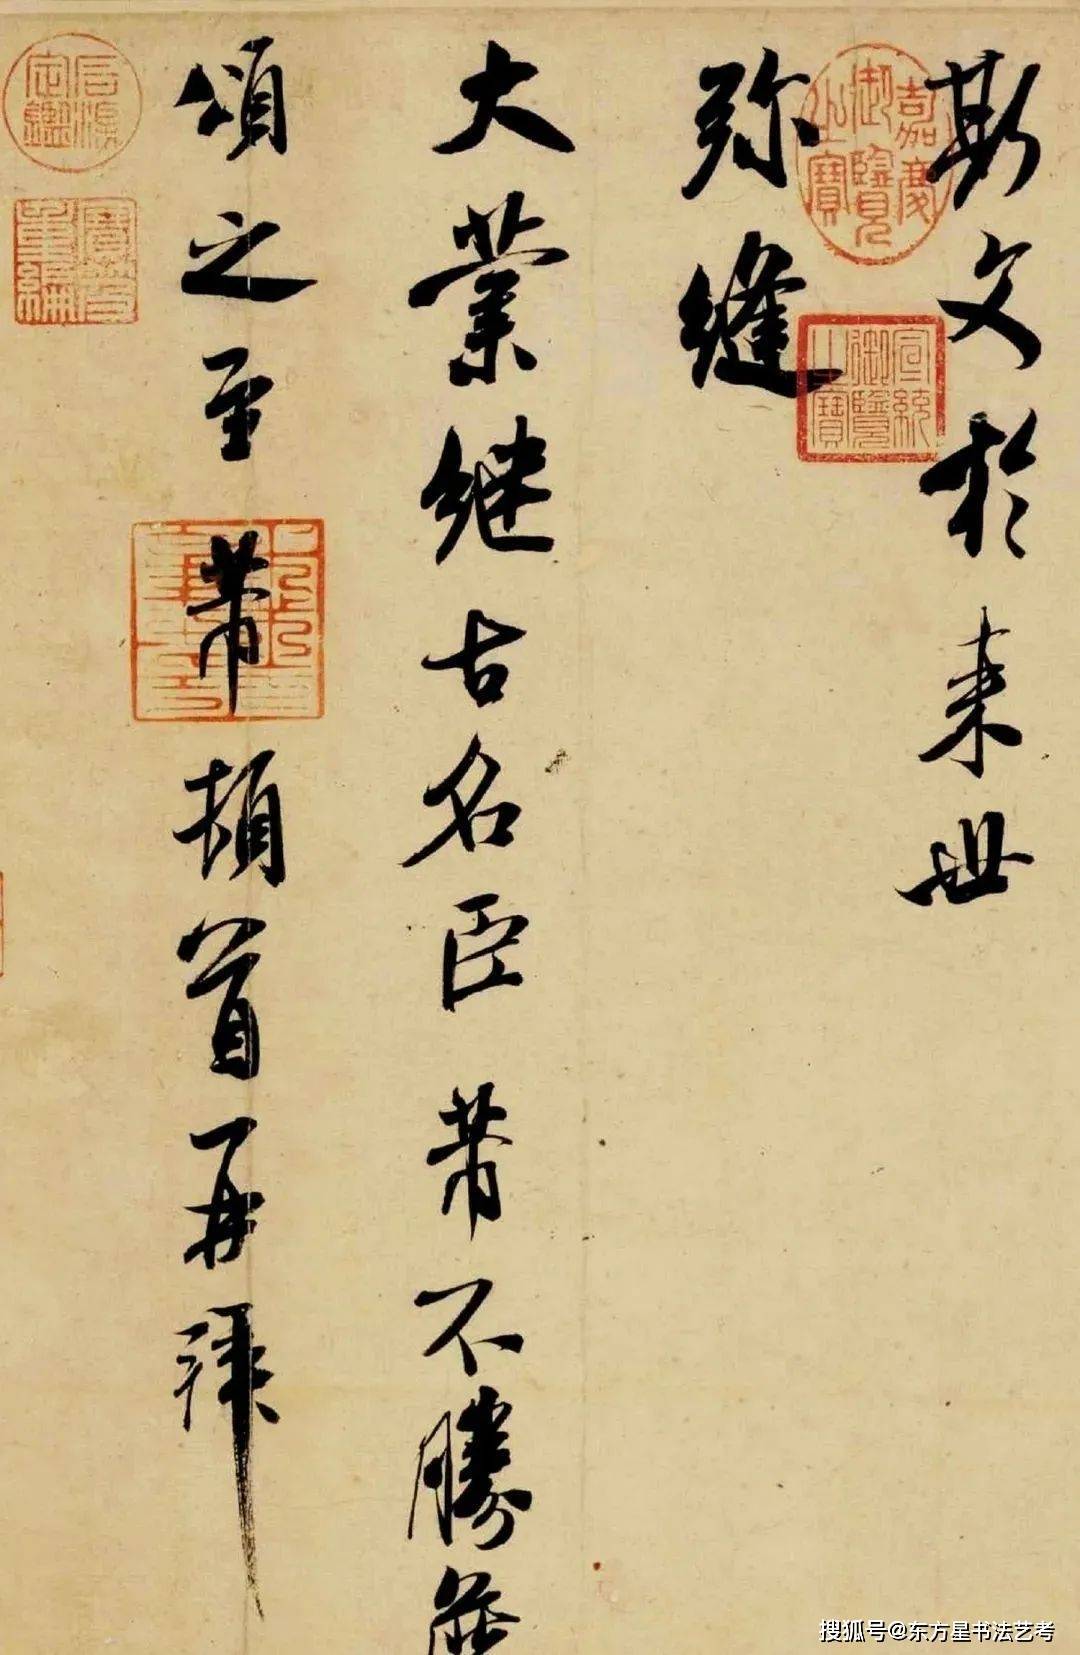 斯文於来世
弥縫
大業継古名臣芾不勝
頌之至芾頓首再拜
嘉慶御覽之寶
宣統御覽之寶
石渠定鑑
寶笈重編
搜狐号@东方星书法艺考